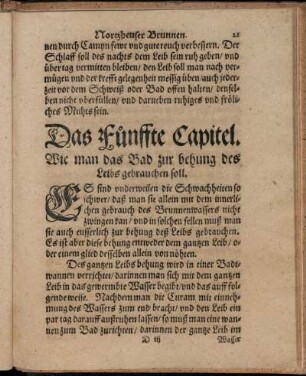 Nortzhenser Brunnen. 21
nen durch Campn fewr und gute rouch verbessern. Der
Schlaff soll des nachts dem Leib sein ruh geben/ und
über tag vermitten bleiben/ den Leib soll man nach ver-
mügen und der kresst gelegenheit messig üben auch jeder-
zeit vor dem Schweiß oder Bad offen halten/ den sel-
ben nicht überfüllen/ und darneben ruhiges und fröli-
ches Muhts sein.
Das Fünffte Capitel.
Wie man das Bad zur behung des
Leibs gebrauchen soll.
ES sind underweilen die Schwachheiten so
schwer/ daß man sie allein mit dem innerli-
chen gebrauch des Brunnenwassers nicht
zwingen kan/ und in solchen fellen muß man
sie auch eusserlich zur behung deß Leibs gebrauchen.
Es ist aber diese behung entweder dem gantzen Leib/ o-
der einem glied desselben allein von nöhten.
Des gantzen Leibs behung wird in einer Badt-
wannen verrichtet/ darinnen man sich mit dem gantzen
Leib in das gewermbte Wasser begibt/ und das auff fol-
gende weise. Nachdem man die Curam mit einneh-
mung des Wassers zum end bracht/ und den Leib ein
par tag darauff außruhen lassen/ so muß man eine wan-
nen zum Bad zurichten/ darinnen der gantze Leib im
D iij Wasser